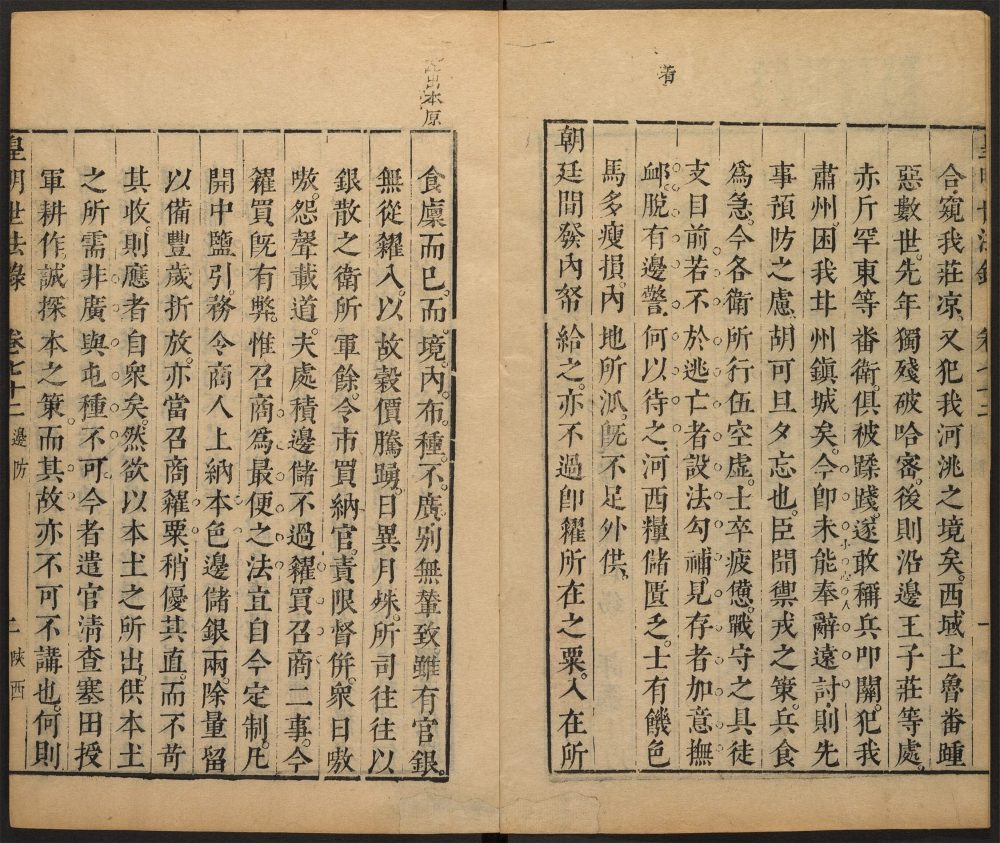 着
合窺我莊凉又犯我河洮之境矣西域土魯番踵
惡數世先年獨殘破哈審後則沿邊王子莊等處
赤斤罕東等番衛俱被蹂踐遂敢稱兵叩關犯我
肅州困我甘州鎮城矣今卽未能奉辭遠討則先
事預防之慮胡可旦夕忘也臣聞禦戎之策兵食
爲急今各衛所行伍空虛士卒疲憊戰守之具徒
支目前若不於逃亡者設法勾補見存者加意撫
䘏脫有邊警何以待之河西糧儲匱乏士有饑色
馬多瘦損內地所派旣不足外供
朝廷間發內帑給之亦不過卽糴所在之粟入在所
本原
食廩而已而境內布種不廣別無輦致雖有官銀
無從糴入以故穀價騰踴日異月殊所司往往以
銀散之衛所軍餘令市買納官責限督併衆日嗷
嗷怨聲載道夫處積邊儲不過糴買召商二事今
糴買旣有弊惟召商爲最便之法宜自今定制凡
開中鹽引務令商人上納本色邊儲銀兩除量留
以備豐歲折放亦當召商糴粟稍優其直而不苛
其收則應者自衆矣然欲以本土之所出供本土
之所需非廣與屯種不可今者遣官淸查塞田授
軍耕作誠探本之策而其故亦不可不講也何則
皇明世法錄 卷七十二 邊防 二 陝西